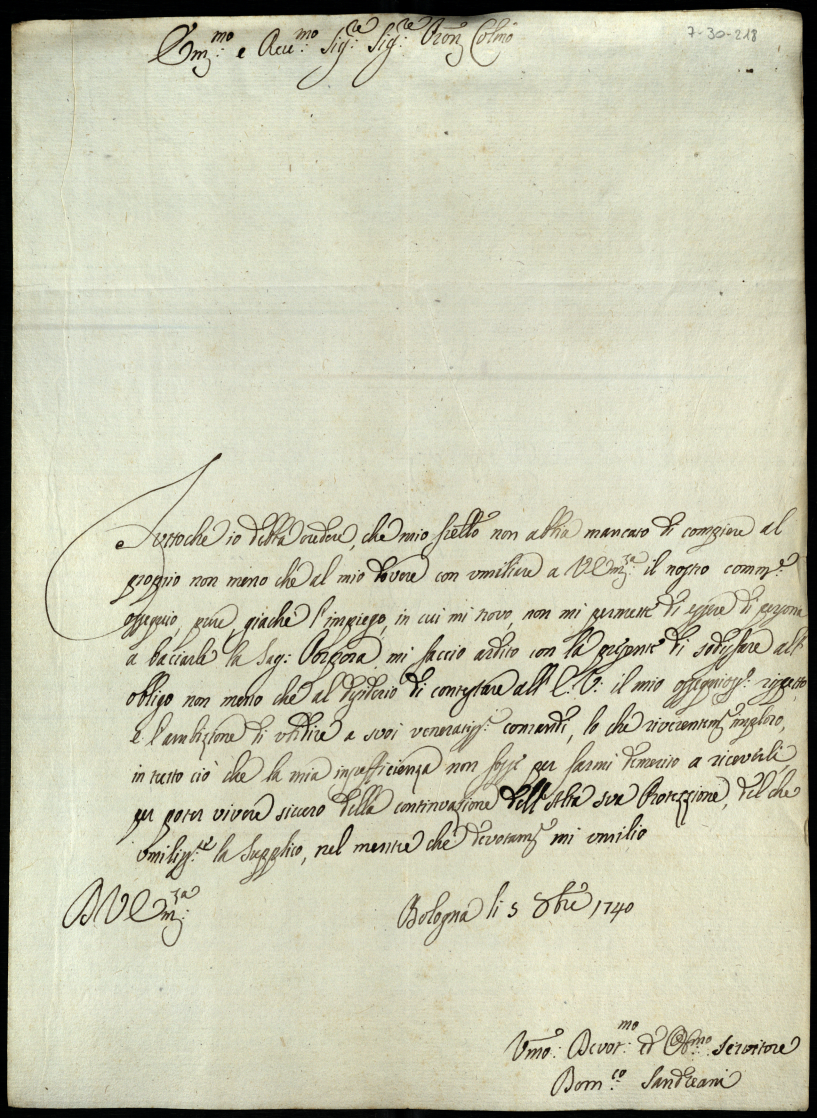 7-30-218
Em:mo e Rev:mo Sig:re Sig:re Pron Colmo
Tuttoche io debba credere, che mio fratello non abbia mancato di compiere al
proprio non meno che al mio dovere con umiliare a V Em:za il nostro comm:e
ossequio, pure, giache l'impiego, in cui mi trovo, non mi permette di essere di persona
a bacciarle la Sag: Porpora, mi faccio ardito con la presente di sodisfare all'
obligo non meno che al desiderio di contestare all' E: V: il mio ossequios:o rispetto,
e l'ambizione di ubidire a suoi veneratiss:i comandi, lo che riverentem:e imploro,
in tutto ciò che la mia insufficienza non fosse per farmi demerito a riceverli,
per poter vivere sicuro della continuazione dell' Alta sua Protezzione, del che
umiliss:te la supplico, nel mentre che devotam:e mi umilio
D V Em:za
Bologna li 5 8bre 1740
Vmo: Devot:mo ed Obb:mo Servitore
Dom:co Sandreani